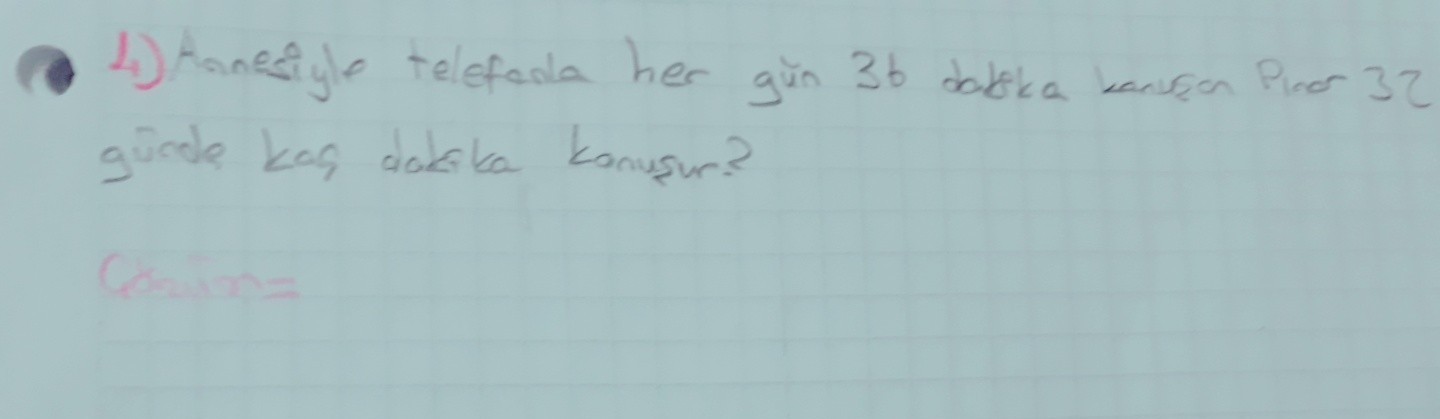 4) Annesiyle telefonda her gün 36 dakika konuşan Pınar 32
günde kaç dakika konuşur?
Çözüm=